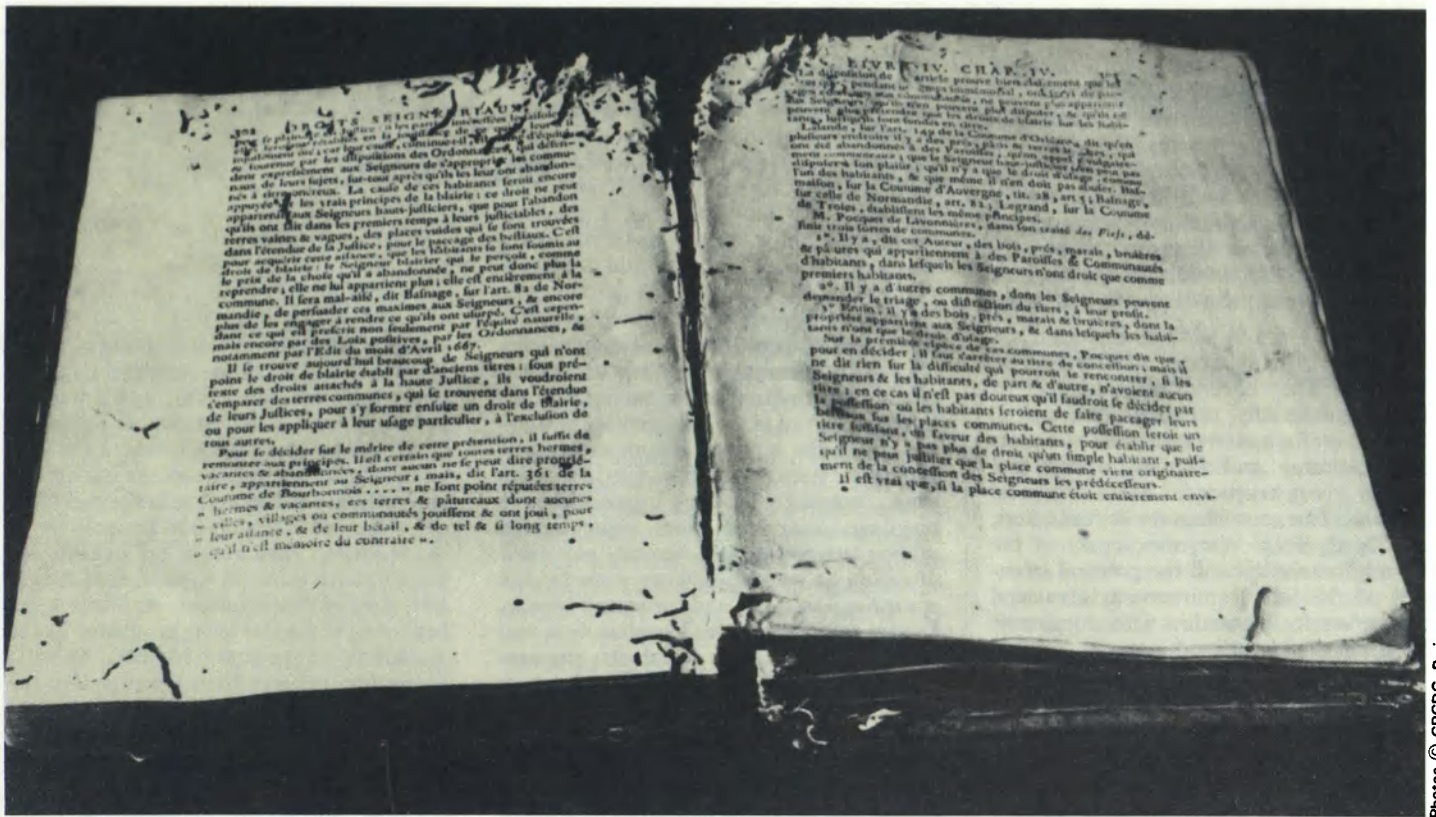 302 DROITS SEIGNEURIAUX
& soutenue par les dispositions des Ordonnances, qui défen-
dent expressément aux Seigneurs de s'approprier les commu-
naux de leurs sujets, sur-tout après qu'ils les leur ont abandon-
nés à titre onéreux. La cause de ces habitants seroit encore
appuyée sur les vrais principes de la blairie : ce droit ne peut
appartenir aux Seigneurs hauts-justiciers, que pour l'abandon
qu'ils ont fait dans les premiers temps à leurs justiciables, des
terres vaines & vagues, des places vuides qui se sont trouvées
dans l'étendue de la Justice, pour le paccage des bestiaux. C'est
pour acquérir cette aisance, que les habitants se sont soumis au
droit de blairie : le Seigneur blairier qui le perçoit, comme
le prix de la chose qu'il a abandonnée, ne peut donc plus la
reprendre ; elle ne lui appartient plus ; elle est entiérement à la
commune. Il sera mal-aisé, dit Basnage, sur l'art. 82 de Nor-
mandie, de persuader ces maximes aux Seigneurs, & encore
plus de les engager à rendre ce qu'ils ont usurpé. C'est cepen-
dant ce qui est prescrit non seulement par l'équité naturelle,
mais encore par des Loix positives, par les Ordonnances, &
notamment par l'Edit du mois d'Avril 1667.
Il se trouve aujourd'hui beaucoup de Seigneurs qui n'ont
point le droit de blairie établi par d'anciens titres : sous pré-
texte des droits attachés à la haute Justice, ils voudroient
s'emparer des terres communes, qui se trouvent dans l'étendue
de leurs Justices, pour s'y former ensuite un droit de Blairie,
ou pour les appliquer à leur usage particulier, à l'exclusion de
tous autres.
Pour se décider sur le mérite de cette prétention, il suffit de
remonter aux principes. Il est certain que toutes terres hermes,
vacantes & abandonnées, dont aucun ne se peut dire proprié-
taire, appartiennent au Seigneur ; mais, dit l'art. 361 de la
Coutume de Bourbonnois .... « ne sont point réputées terres
» hermes & vacantes, ces terres & pâturaux dont aucunes
» villes, villages ou communautés jouissent & ont joui, pour
» leur aisance, & de leur bétail, & de tel & si long temps,
» qu'il n'est mémoire du contraire ».
LIVRE IV. CHAP. IV.
La disposition de article prouve bien clairement que les
aux Seigneurs
tants,
Lalande, sur l'art. 149 de la Coutume d'Orléans, dit qu'en
plusieurs endroits il y a des prés, & terres qui
ont été abandonnés à des Paroisses, qu'on appelle vulgaire-
ment communeaux ; que le Seigneur haut-justicier n'en peut pas
disposer à son plaisir ; qu'il n'y a que le droit d'usage, comme
l'un des habitants, & que même il n'en doit pas abuser.
maison, sur la Coutume d'Auvergne, tit. 28, art 5 ; Basnage,
sur celle de Normandie, art. 82 ; Legrand, sur la Coutume
de Troies, établissent les même principes.
M. Pocquet de Livonnières, dans son traité des Fiefs, dé-
finit trois sortes de communes.
1°. Il y a, dit cet Auteur, des bois, prés, marais, bruières
& pâtures qui appartiennent à des Paroisses & Communautés
d'habitants, dans lesquels les Seigneurs n'ont droit que comme
premiers habitants.
2°. Il y a d'autres communes, dont les Seigneurs peuvent
demander le triage, ou distraction du tiers, à leur profit.
3° Enfin, il y a des bois, prés, marais & bruières, dont la
propriété appartient aux Seigneurs, & dans lesquels les habi-
tants n'ont que le droit d'usage.
Sur la première espèce de ces communes, Pocquet dit que,
pour en décider, il faut s'arrêter au titre de concession ; mais il
ne dit rien sur la difficulté qui pourroit se rencontrer, si les
Seigneurs & les habitants, de part & d'autre, n'avoient aucun
titre : en ce cas il n'est pas douteux qu'il faudroit se décider par
la possession où les habitants seroient de faire paccager leurs
bestiaux sur les places communes. Cette possession seroit un
titre suffisant, en faveur des habitants, pour établir que le
Seigneur n'y a pas plus de droit qu'un simple habitant, puis-
qu'il ne peut justifier que la place commune vient originaire-
ment de la concession des Seigneurs ses prédécesseurs.
Il est vrai que, si la place commune étoit entiérement envi-
Photos © CRCDG, Paris